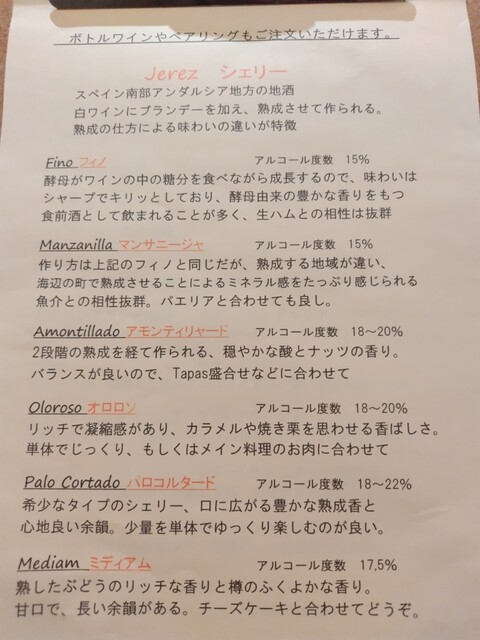 ボトルワインやペアリングもご注文いただけます。
Jerez シェリー
スペイン南部アンダルシア地方の地酒
白ワインにブランデーを加え、熟成させて作られる。
熟成の仕方による味わいの違いが特徴
Fino フィノ アルコール度数 15%
酵母がワインの中の糖分を食べながら成長するので、味わいは
シャープでキリッとしており、酵母由来の豊かな香りをもつ
食前酒として飲まれることが多く、生ハムとの相性は抜群
Manzanilla マンサニージャ アルコール度数 15%
作り方は上記のフィノと同じだが、熟成する地域が違い、
海辺の町で熟成させることによるミネラル感をたっぷり感じられる
魚介との相性抜群。パエリアと合わせても良し。
Amontillado アモンティリャード アルコール度数 18~20%
2段階の熟成を経て作られる、穏やかな酸とナッツの香り。
バランスが良いので、Tapas盛合せなどに合わせて
Oloroso オロロソ アルコール度数 18~20%
リッチで凝縮感があり、カラメルや焼き栗を思わせる香ばしさ。
単体でじっくり、もしくはメイン料理のお肉に合わせて
Palo Cortado パロコルタード アルコール度数 18~22%
希少なタイプのシェリー、口に広がる豊かな熟成香と
心地良い余韻。少量を単体でゆっくり楽しむのが良い。
Mediam ミディアム アルコール度数 17,5%
熟したぶどうのリッチな香りと樽のふくよかな香り。
甘口で、長い余韻がある。チーズケーキと合わせてどうぞ。